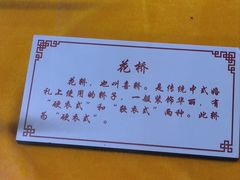 花轿
花轿，也叫喜轿。是传统中式婚
礼上使用的轿子，一般装饰华丽，有
“硬衣式”和“软衣式”两种。此轿
为“硬衣式”。